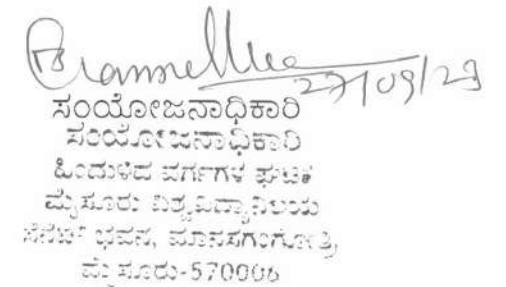 27/09/23
ಸಂಯೋಜನಾಧಿಕಾರಿ
ಸಂಯೋಜನಾಧಿಕಾರಿ
ಹಿಂದುಳಿದ ವರ್ಗಗಳ ಘಟಕ
ಮೈಸೂರು ವಿಶ್ವವಿದ್ಯಾನಿಲಯ
ಸೆನೆಟ್ ಭವನ, ಮಾನಸಗಂಗೋತ್ರಿ,
ಮೈಸೂರು-570006